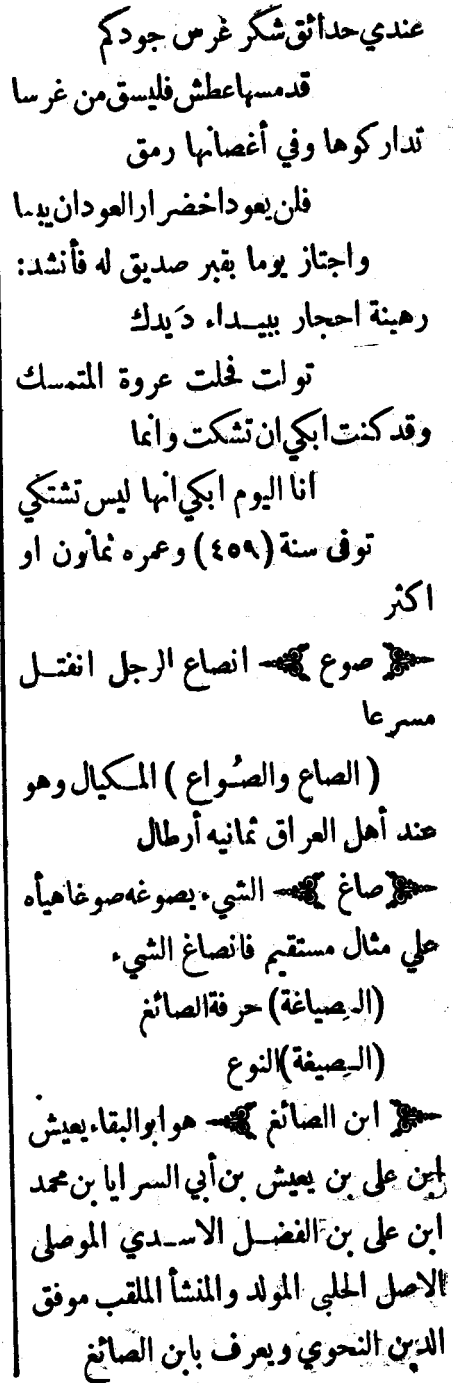 عندي حدائق شكر غرس جودكم
قد مسها عطش فليسق من غرسا
تداركوها وفي أغصانها رمق
فلن يعود اخضرار العود ان يبسا
واجتاز يوما بقبر صديق له فأنشد:
رهينة احجار ببيـداء دَيدك
تولت فحلت عروة المتمسك
وقد كنت ابكي ان تشكت وانما
انا اليوم ابكي انها ليس تشتكي
توفى سنة (٤٥٩) وعمره ثمانون او
اكثر
﴿ صوع ﴾ انصاع الرجل انفتـل
مسرعا
( الصاع والصُـواع ) المـكيال وهو
عند أهل العراق ثمانيه أرطال
﴿ صاغ ﴾ الشيء يصوغه صوغا هيأه
علي مثال مستقيم فانصاغ الشيء
(الـصِياغة) حرفة الصائغ
(الـصِيغة) النوع
﴿ ابن الصائغ ﴾ هو ابو البقاء يعيش
ابن على بن يعيش بن أبي السرايا بن محمد
ابن على بن الفضـل الاسـدي الموصلى
الاصل الحلبى المولد والمنشأ الملقب موفق
الدين النحوي ويعرف بابن الصائغ